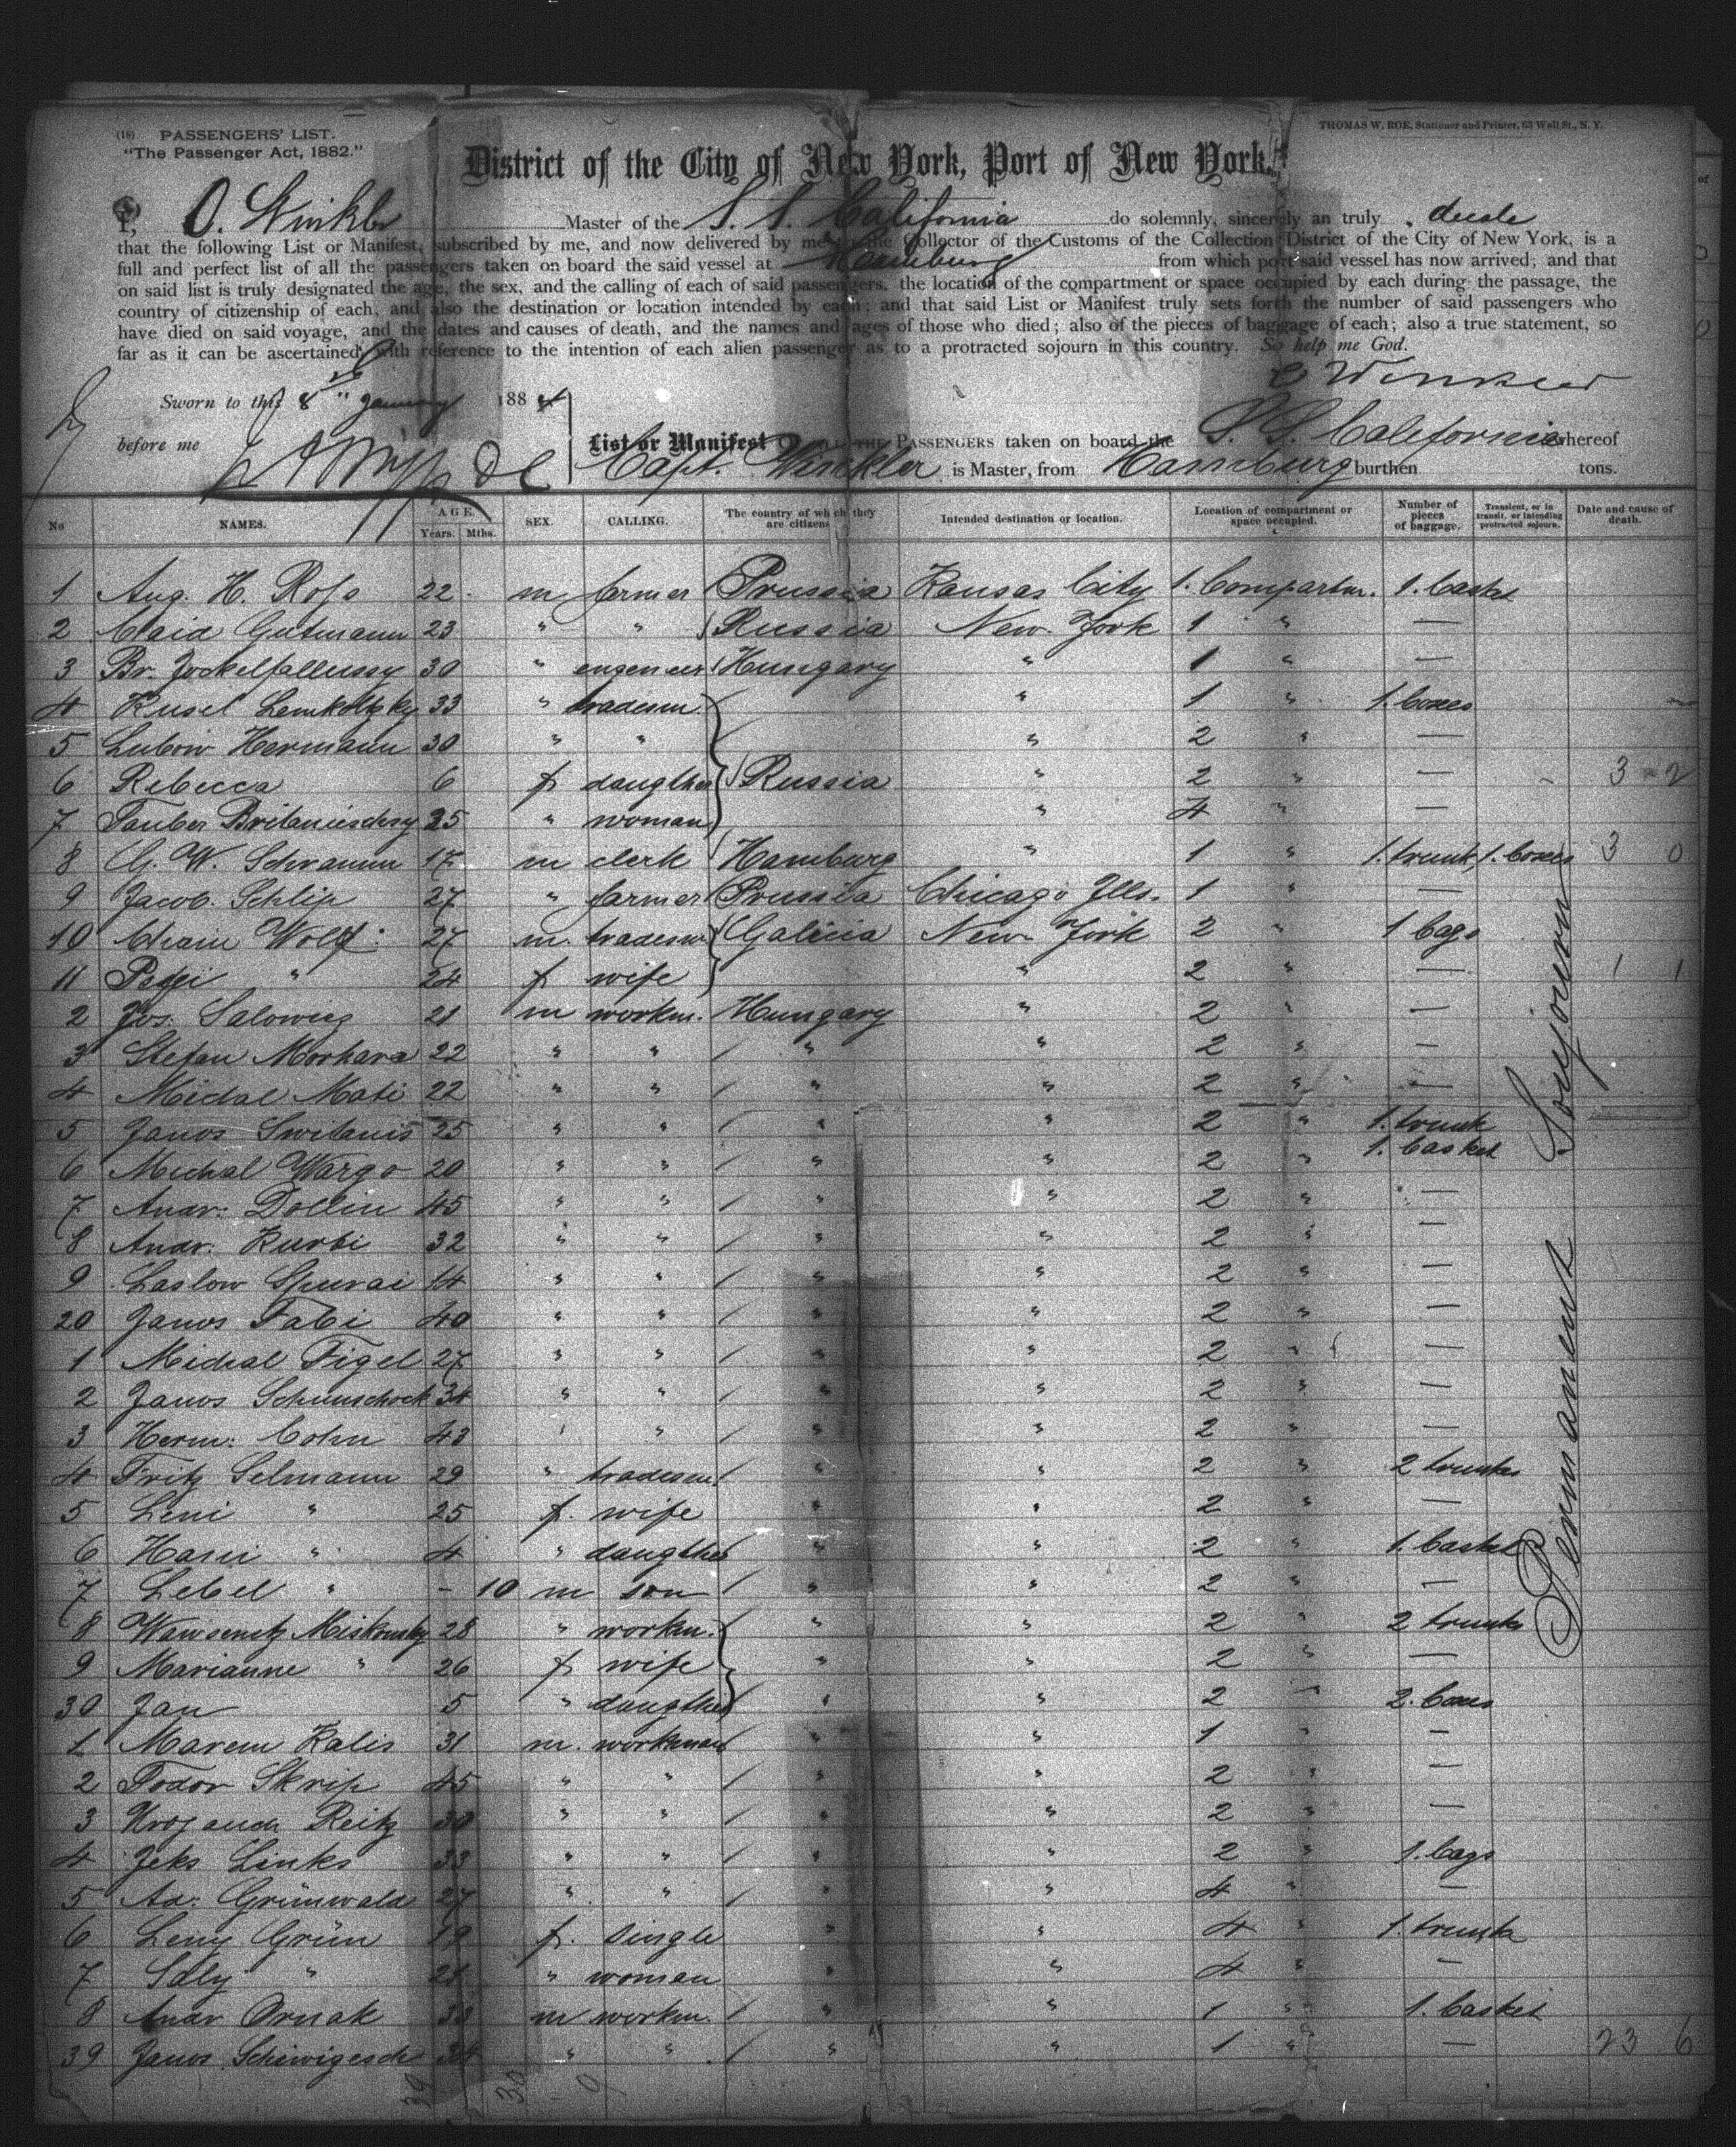 (18) PASSENGERS' LIST.
"The Passenger Act, 1882."
THOMAS W. ROE, Stationer and Printer, 63 Wall St., N. Y.
District of the City of New York, Port of New York.
I, O. Winkler Master of the S. S. California do solemnly, sincerely an truly
that the following List or Manifest, subscribed by me, and now delivered by me to the Collector of the Customs of the Collection District of the City of New York, is a
full and perfect list of all the passengers taken on board the said vessel at Hamburg from which port said vessel has now arrived; and that
on said list is truly designated the age, the sex, and the calling of each of said passengers, the location of the compartment or space occupied by each during the passage, the
country of citizenship of each, and also the destination or location intended by each; and that said List or Manifest truly sets forth the number of said passengers who
have died on said voyage, and the dates and causes of death, and the names and ages of those who died; also of the pieces of baggage of each; also a true statement, so
far as it can be ascertained, with reference to the intention of each alien passenger as to a protracted sojourn in this country. So help me God.
Winkler
Sworn to this 8th January 1884
before me
List or Manifest OF ALL THE PASSENGERS taken on board the S. S. California whereof
Capt. Winkler is Master, from Hamburg burthen tons.
No NAMES. AGE. Years. Mths. SEX. CALLING. The country of which they are citizens. Intended destination or location. Location of compartment or space occupied. Number of pieces of baggage. Transient, or in transit, or intending protracted sojourn. Date and cause of death.
1 Aug. H. Rofs 22 m farmer Prussia Kansas City 1. Compartm. 1. basket
2 Chaid Gutmann 23 " " Russia New York 1 " —
3 Br. 30 " engeneer Hungary " 1 " —
4 Rusel Lemkoltzky 33 " tradesm. " 1 " 1. boxes
5 Lubow Hermann 30 " " " 2 " —
6 Rebecca 6 f daugther Russia " 2 " — 3 - 2
7 Tauber 25 " woman " 4 " —
8 G. W. Schramm 17 m clerk Hamburg " 1 " 1. trunk, 1. boxes 3 0
9 Jacob. Schlip 27 " farmer Prussia Chicago Ills. 1 " —
10 Chaim Wolf 27 m. tradesm. Galicia New York 2 " 1 bags
11 Peppi " 24 f wife " 2 " — 1 1
2 Jos. Salowicz 21 m workm. Hungary " 2 " —
3 Stefan Morhara 22 " " " " 2 " —
4 Michal Mati 22 " " " " 2 " —
5 Janos Switanis 25 " " " " 2 " 1. trunk 1. basket
6 Michal Wargo 20 " " " " 2 "
7 Andr. Dollin 45 " " " " 2 " —
8 Andr. Kurbi 32 " " " " 2 " —
9 Laslow Spurai 14 " " " " 2 " —
20 Janos Fabi 40 " " " " 2 " —
1 Michal Figel 27 " " " " 2 " —
2 Janos Schunschock 34 " " " " 2 " —
3 Herm: Cohn 43 " " " " 2 " —
4 Fritz Selmann 29 " tradesm. " " 2 " 2 trunks
5 Leni " 25 f. wife " " 2 " —
6 Hani " 4 " daugther " " 2 " 1. basket
7 Lebel " - 10 m son " " 2 " —
8 Wawsenetz Miskowsky 28 " workm. " " 2 " 2 trunks
9 Marianne " 26 f wife " " 2 " —
30 Jan 5 " daugther " " 2 " 2. boxes
1 Marem Kalis 31 m. workman " " 1 " —
2 Fodor Skrip 45 " " " " 2 " —
3 Reitz 30 " " " " 2 " —
4 Jeks Links 33 " " " " 2 " 1. bags
5 Ad: Grünwald 27 " " " " 4 " —
6 Leny Grün 19 f. single " " 4 " 1. trunk
7 Saly " 21 " woman " " 4 " —
8 Andr Ornak 33 m workm. " " 1 " 1. basket
39 Janos Schiwigesch 34 " " " " 1 " — 23 6
Permanent Soujourn
39 30 - 9